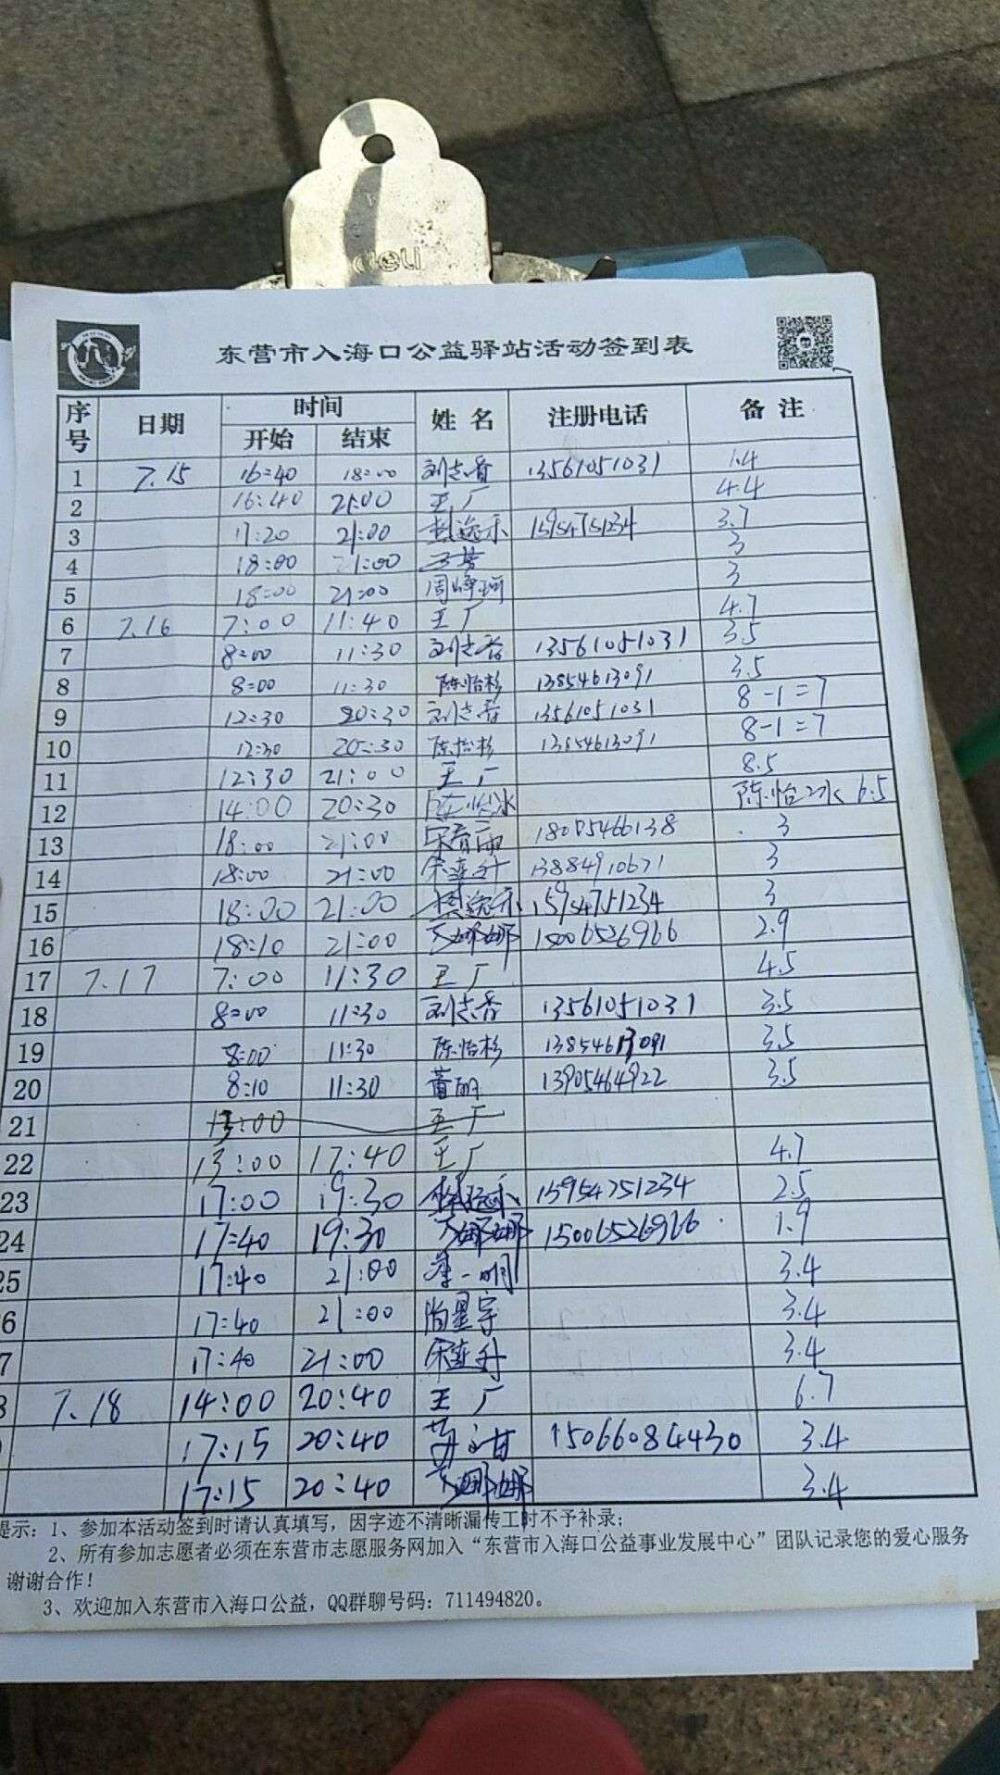 deli
东营市入海口公益驿站活动签到表
序号 日期 时间 姓名 注册电话 备注
开始 结束
1 7.15 16:40 18:00 刘志香 13561051031 1.4
2 16:40 21:00 王广 4.4
3 17:20 21:00 15954751234 3.7
4 18:00 21:00 3
5 18:00 21:00 3
6 7.16 7:00 11:40 王广 4.7
7 8:00 11:30 刘志香 13561051031 3.5
8 8:00 11:30 陈怡杉 13854613091 3.5
9 12:30 20:30 刘志香 13561051031 8-1=7
10 12:30 20:30 陈怡杉 13854613091 8-1=7
11 12:30 21:00 王广 8.5
12 14:00 20:30 陈怡冰 陈怡冰 6.5
13 18:00 21:00 3
14 18:00 21:00 13884910671 3
15 18:00 21:00 15954751234 3
16 18:10 21:00 15006526966 2.9
17 7.17 7:00 11:30 王广 4.5
18 8:00 11:30 刘志香 13561051031 3.5
19 8:00 11:30 陈怡杉 13854613091 3.5
20 8:10 11:30 13905464922 3.5
21 13:00 王广
22 13:00 17:40 王广 4.7
23 17:00 19:30 15954751234 2.5
24 17:40 19:30 15006526966 1.9
25 17:40 21:00 3.4
6 17:40 21:00 3.4
7 17:40 21:00 3.4
8 7.18 14:00 20:40 王广 6.7
17:15 20:40 15066084430 3.4
17:15 20:40 3.4
提示：1、参加本活动签到时请认真填写，因字迹不清晰漏传工时不予补录；
2、所有参加志愿者必须在东营市志愿服务网加入“东营市入海口公益事业发展中心”团队记录您的爱心服务
谢谢合作！
3、欢迎加入东营市入海口公益，QQ群聊号码：711494820。